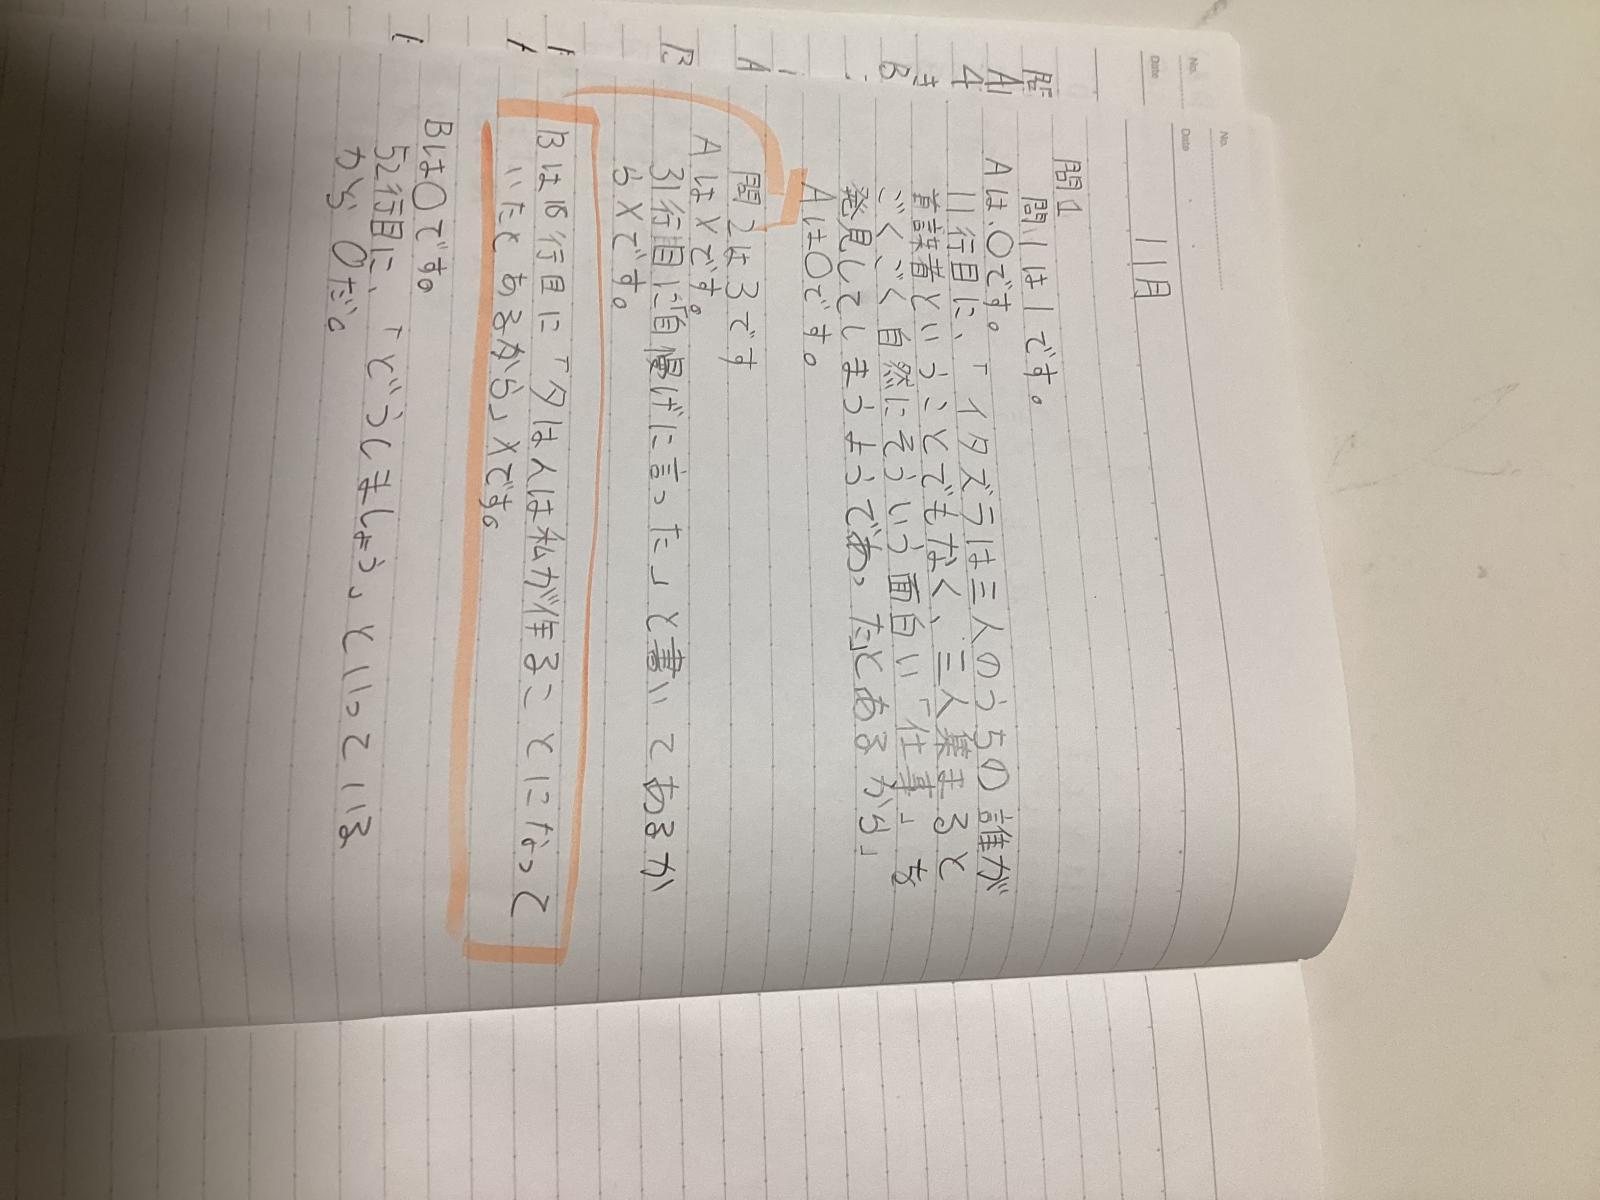 No.
Date
No.
Date
11月
問1
問1は1です。
Aは、○です。
11行目に、「イタズラは三人のうちの誰が
首謀者ということでもなく、三人集まると
ごく、ごく自然にそういう面白い「仕事」を
発見してしまうようであった」とあるから」
Aは○です。
問2は3です
Aは×です。
31行目に「自慢げに言った」と書いてあるか
ら×です。
Bは16行目に「夕はんは私が作ることになって
いたとあるから」×です。
Bは○です。
52行目に、「どうしましょう」といっている
から○だ。